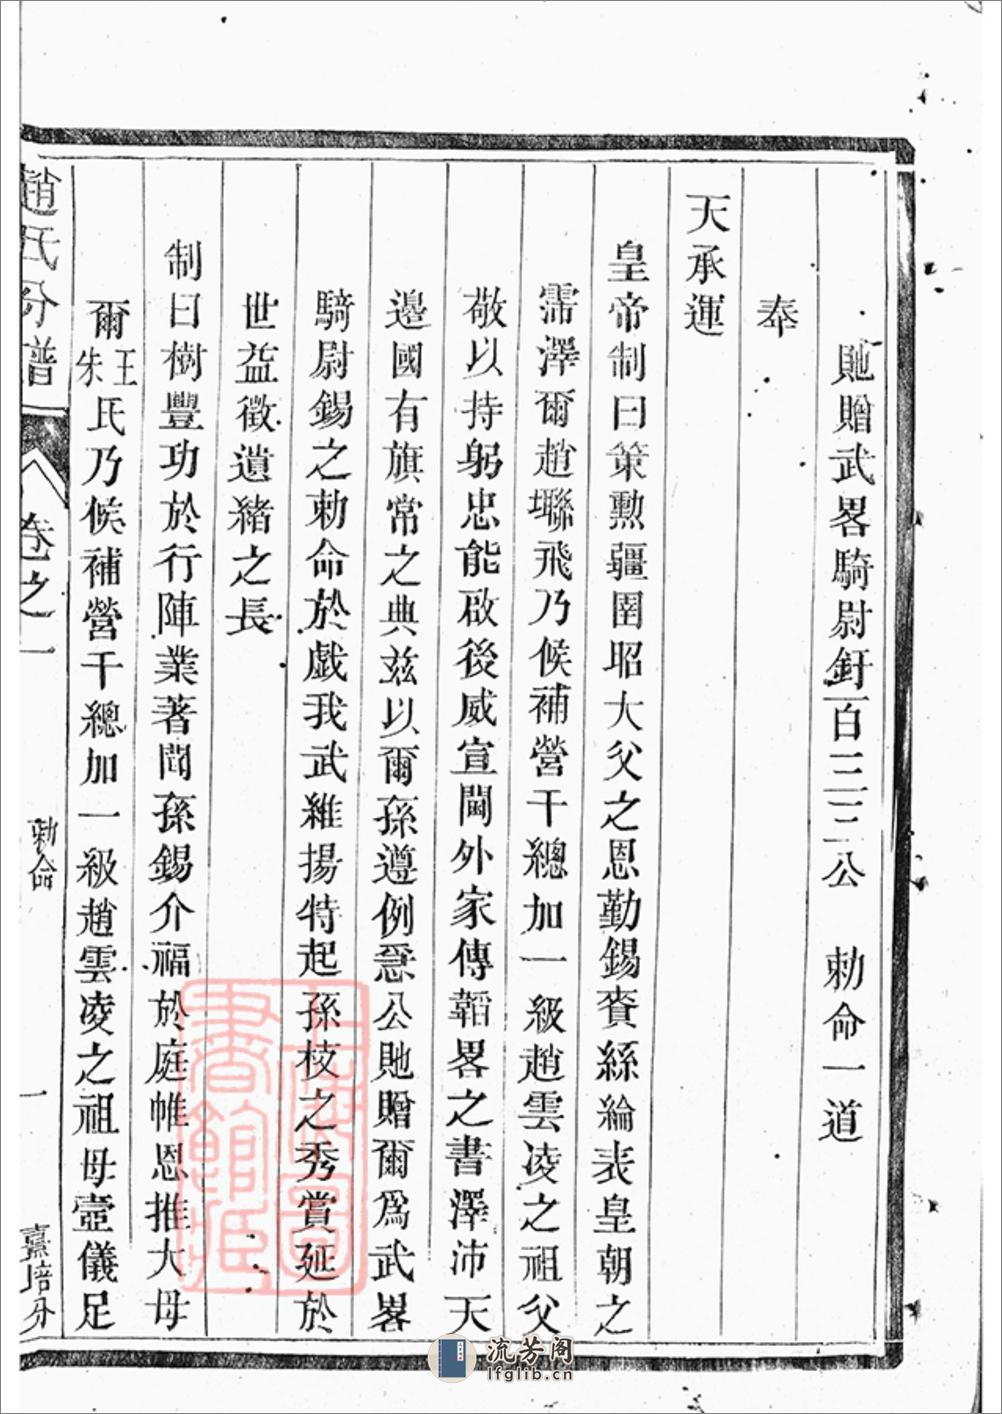 貤贈武畧騎尉釪一百三三公　勅命一道
奉
天承運
皇帝制曰策勲疆圉昭大父之恩勤錫賚絲綸表皇朝之
霈澤爾趙塀飛乃候補營千總加一級趙雲凌之祖父
敬以持躬忠能啟後威宣閫外家傳韜畧之書澤沛天
邊國有旗常之典兹以爾孫遵例急公貤贈爾為武畧
騎尉錫之勅命於戲我武維揚特起孫枝之秀賞延於
世益徵遺緒之長
制曰樹豐功於行陣業著聞孫錫介福於庭帷恩推大母
爾王朱氏乃候補營千總加一級趙雲凌之祖母壼儀足
趙氏分譜
卷之一
勅命
一
上海圖書館藏
流芳阁
lfglib.cn